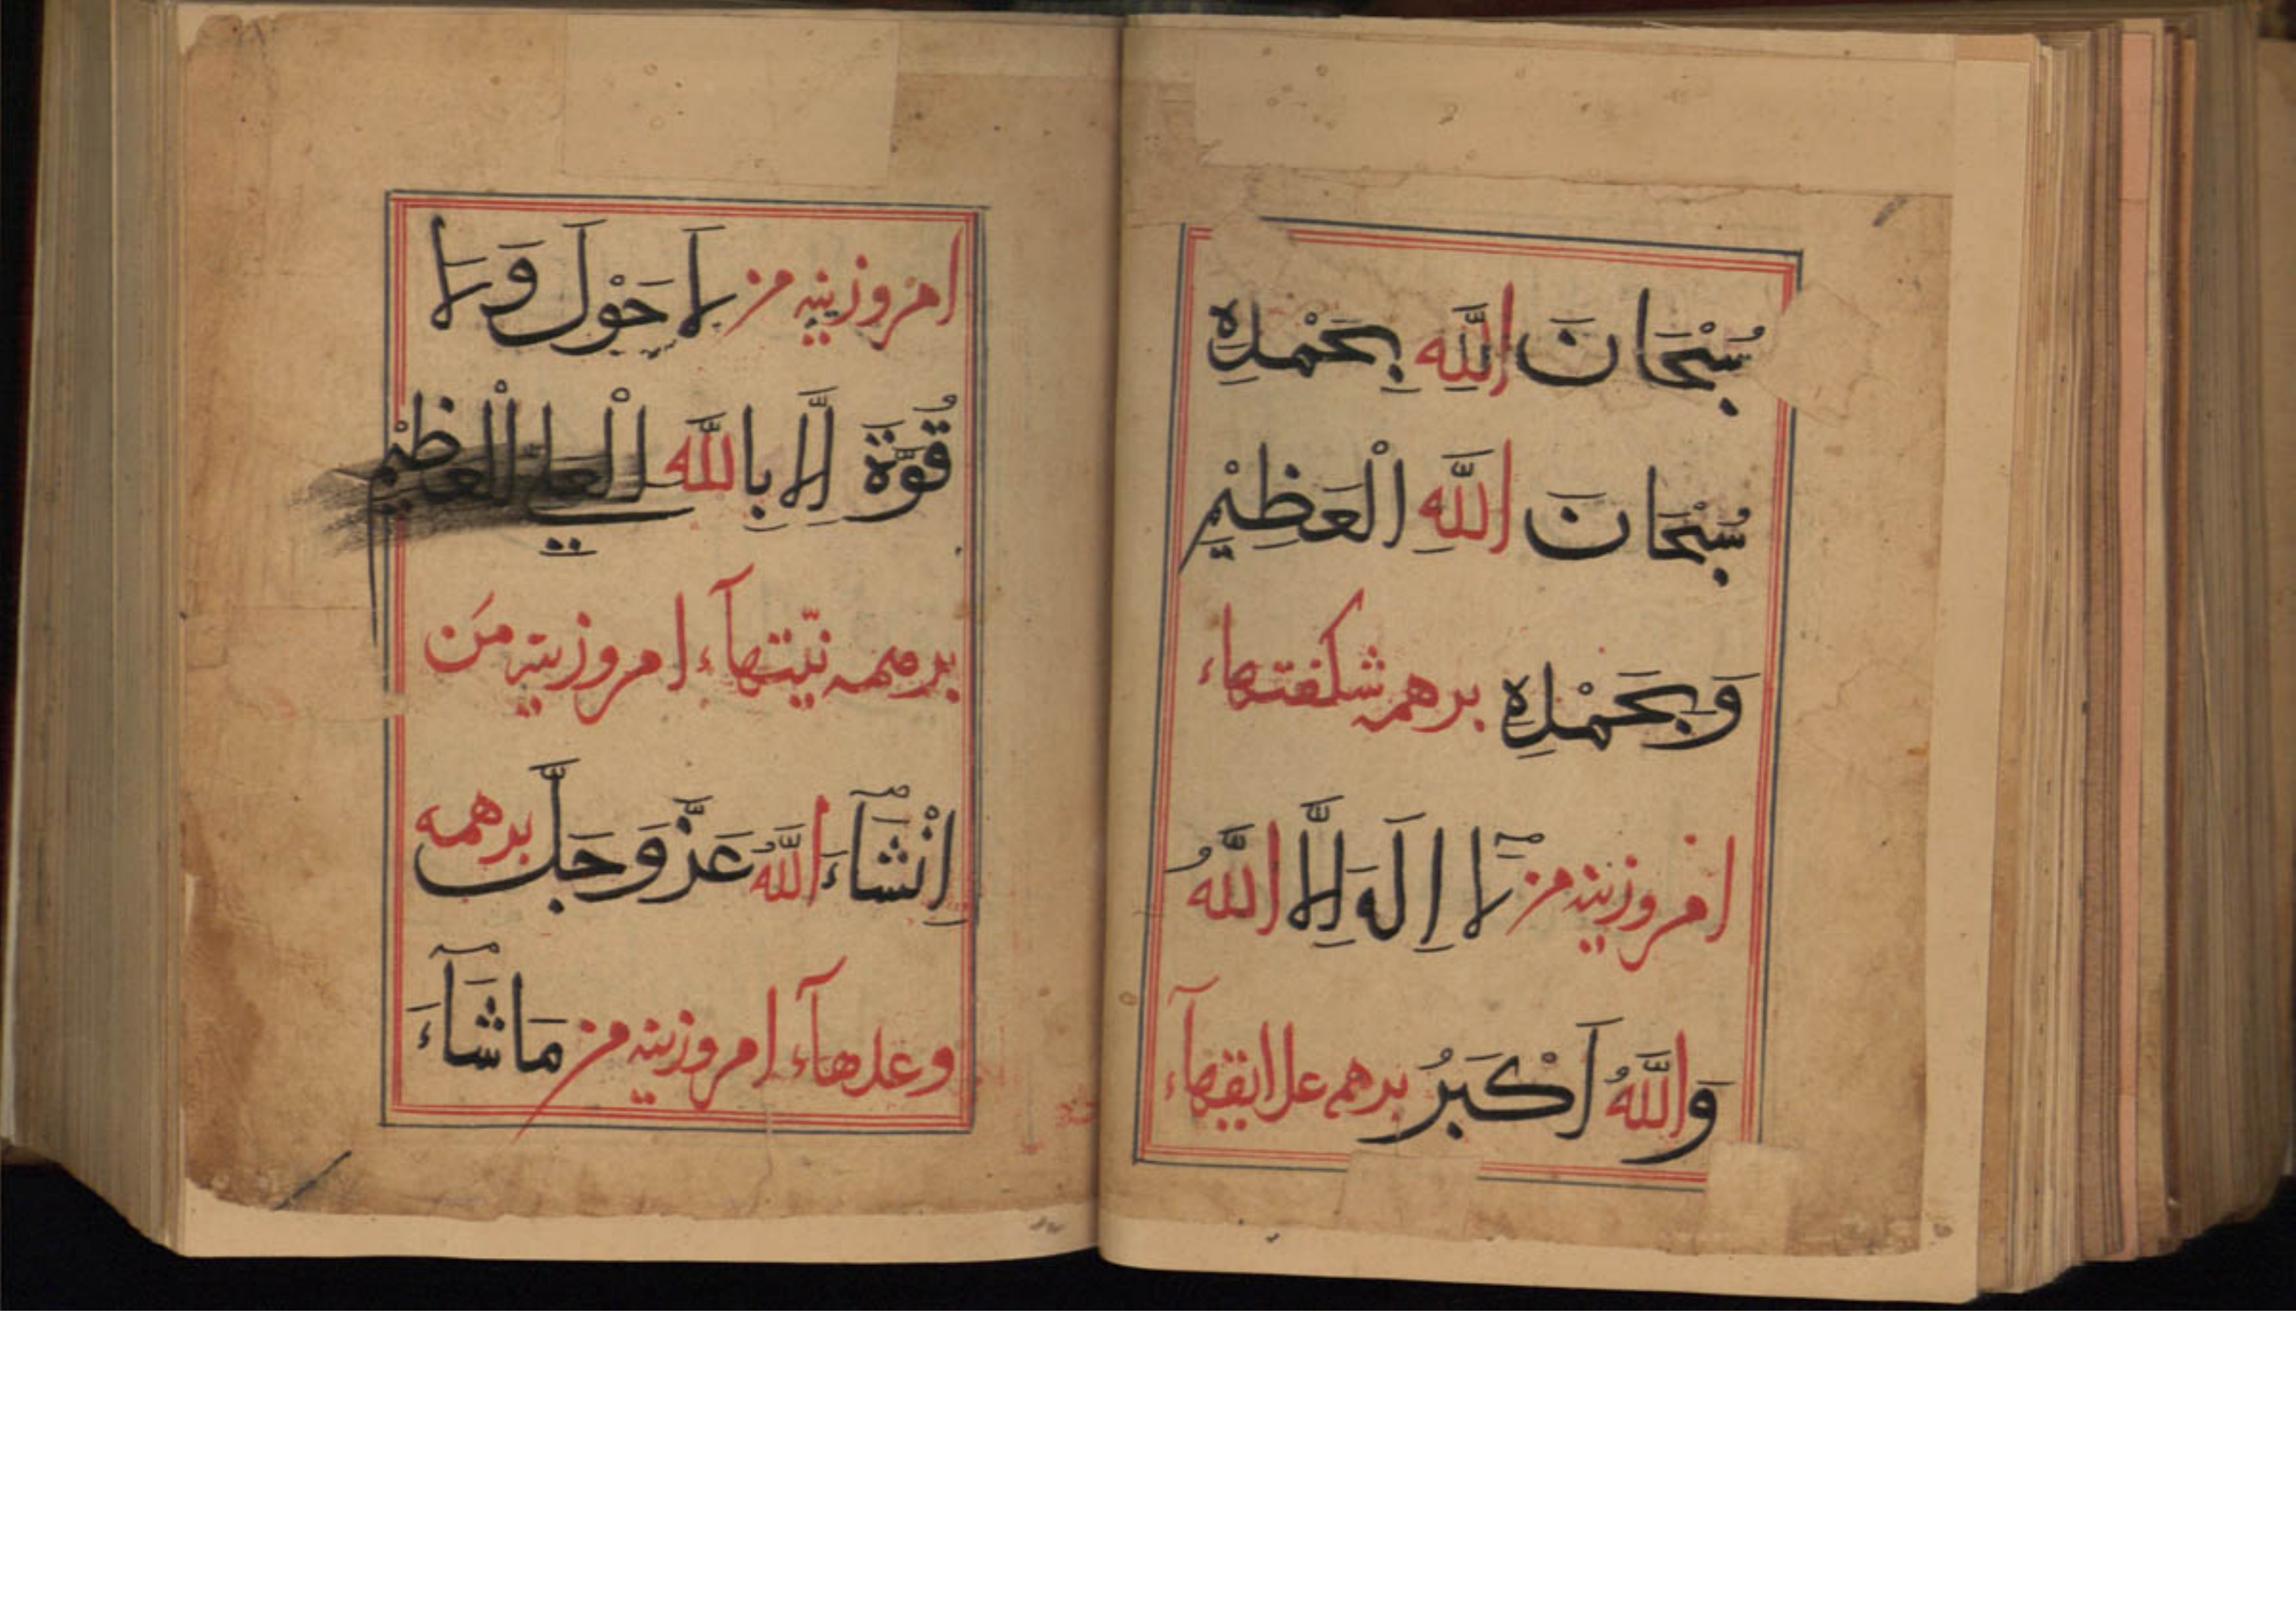 سُبْحَانَ اللَّهِ بِحَمْدِهِ
سُبْحَانَ اللَّهِ الْعَظِيْمِ
وَبِحَمْدِهِ برهمه شكفتهاء
امروزینه من لَآ اِلَهَ اِلَّا اللَّهُ
وَاللَّهُ اَكْبَرُ برهمه علايقهآء
امروزینه من لَا حَوْلَ وَلَا
قُوَّةَ اِلَّا بِاللَّهِ الْعَلِي الْعَظِيْمِ
برهمه نیّتهآء امروزینه مَن
اِنْشَآءَ اللَّهُ عَزَّ وَجَلَّ برهمه
وعدهآء امروزینه من مَاشَآءَ